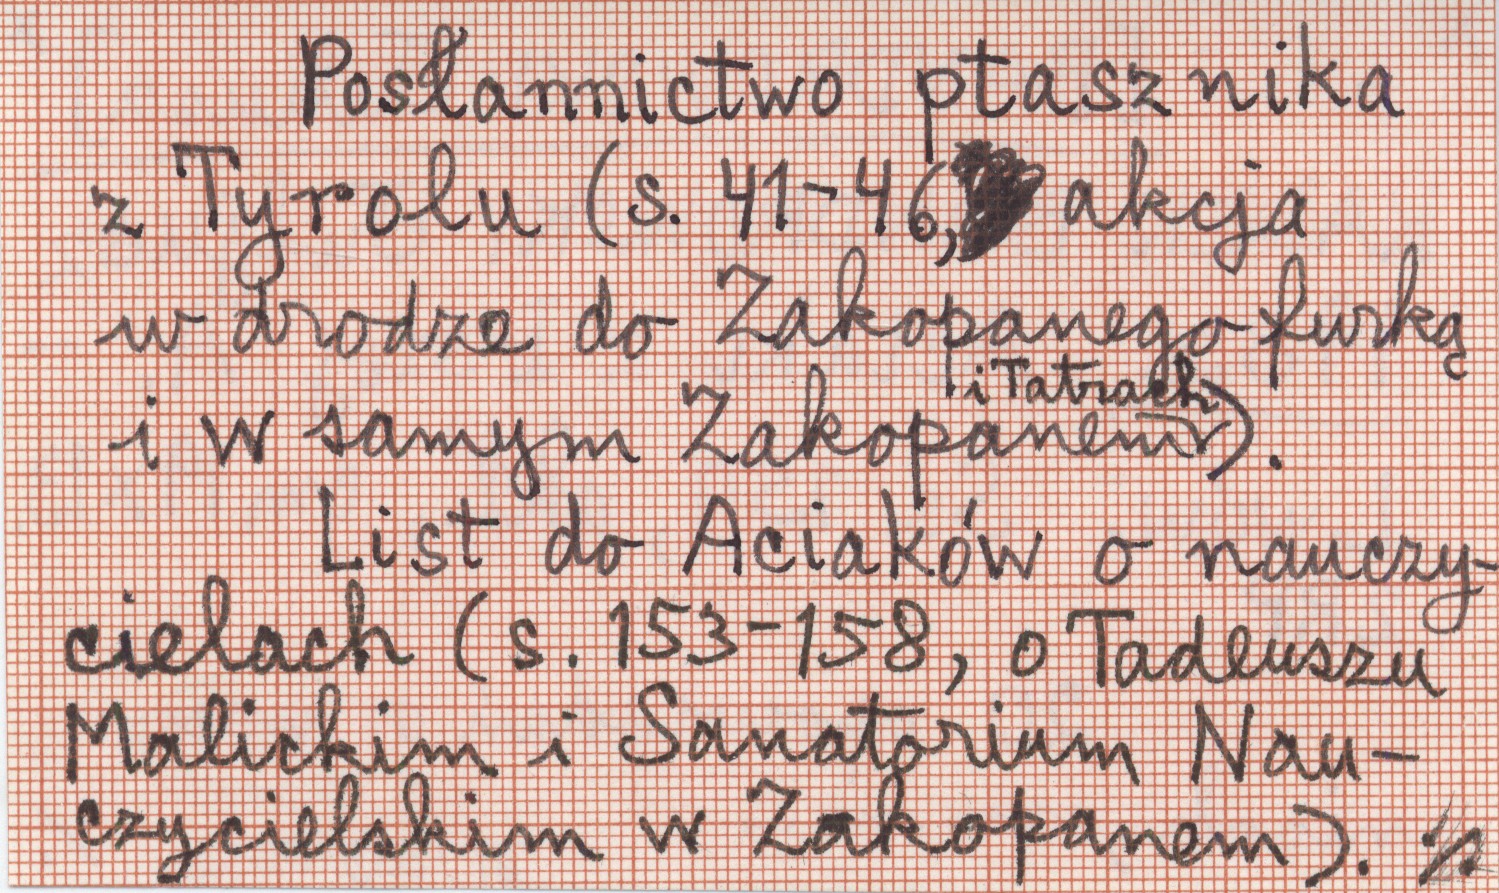 Posłannictwo ptasznika
z Tyrolu (s. 41-46, akcja
w drodze do Zakopanego furką
i w samym Zakopanem i Tatrach).
List do Aciaków o nauczy-
cielach (s. 153-158, o Tadeuszu
Malickim i Sanatorium Nau-
czycielskim w Zakopanem).